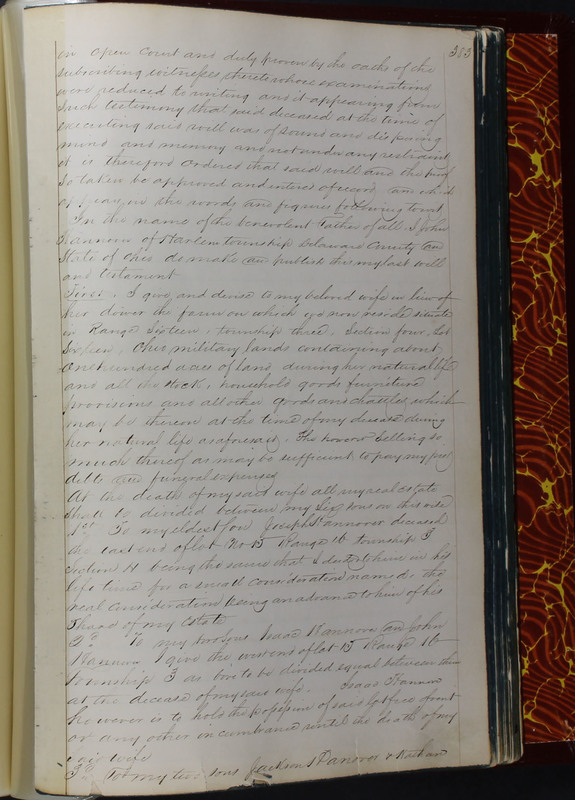 383
in open Court and duly proven by the oaths of the
subscribing witnesses thereto whose examinations
were reduced to writing and it appearing from
such testimony that said deceased at the time of
executing said will was of sound and disposing
mind and memory and not under any restraint
it is therefore ordered that said will and the proof
so taken be approved and entered of record, and which
appear in the words and figures following towit
In the name of the benevolent Father of all. I John
Hannover of Harlem township Delaware County and
State of Ohio do make and publish this my last will
and testament
First. I give and devise to my beloved wife in lieu of
her dower the farm on which we now reside situate
in Range Sixteen, township three, Section four, Lot
Sixteen, Ohio military lands containing about
one hundred acres of land during her natural life
and all the stock, household goods furniture
provisions and all other goods and chattels which
may be thereon at the time of my decease during
her natural life as aforesaid. She however selling so
much thereof as may be sufficient to pay my just
debts and funeral expenses
At the death of my said wife all my real estate
shall be divided between my six sons on this wise
1st To my eldest son Joseph Hannover deceased
the east end of lot No 15 Range 16 township 3
Section 4 being the same that I deed to him in his
life time for a small consideration named, the
real consideration being an advance to him of his
share of my estate
2d To my two sons Isaac Hannover and John
Hannover I give the west end of lot 15 Range 16
Township 3 as to be divided equal between them
at the decease of my said wife. Isaac Hannover
however is to hold the possession of said lot free from
or any other incumbrance until the death of my
said wife
3d To my two sons Jackson Hannover &